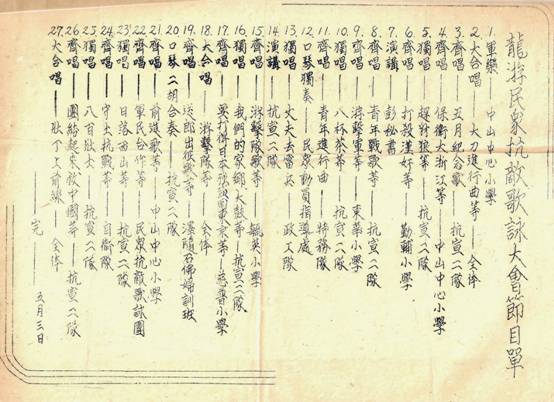 龍游民衆抗敵歌詠大會節目單
1. 軍樂——中山中心小學
2. 大合唱——大刀進行曲等——全体
3. 齊唱——五月紀念歌——抗宣八隊
4. 齊唱——保衛大浙江等——中山中心小學
5. 獨唱——趕豺狼等——抗宣八隊
6. 齊唱——打殺漢奸等——勤輔小學
7. 演講——彭秘書
8. 齊唱——青年戰歌等——抗宣八隊
9. 齊唱——游擊軍等——東華小學
10. 獨唱——八杯茶等——抗宣八隊
11. 齊唱——青年進行曲——特務隊
12. 口琴獨奏——民衆動員指導處
13. 獨唱——丈夫去當兵——政工隊
14. 演講——抗宣八隊
15. 齊唱——游擊隊歌等——毓英小學
16. 獨唱——我們的家鄉大鼓等——抗宣八隊
17. 齊唱——要打倒日本強國東京等——慈普小學
18. 大合唱——游擊隊等——全体
19. 齊唱——送郎出征歌等——溪隨石佛婦訓班
20. 口琴二胡合奏——抗宣八隊
21. 齊唱——前進歌等——中山中心小學
22. 齊唱——軍民合作等——民衆抗敵歌詠團
23. 獨唱——日落西山等——抗宣八隊
24. 齊唱——守土抗戰等——自衛隊
25. 獨唱——八百壯士——抗宣八隊
26. 齊唱——團結起來救中國等——抗宣八隊
27. 大合唱——壯丁上前線——全体
——完——
五月三日